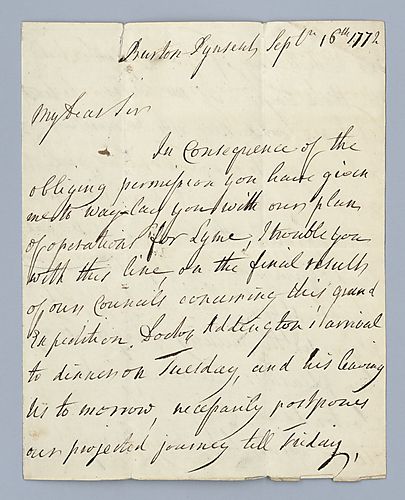 Burton Pynsent Sept.r 16th 1772
My Dear Sir
In Consequence of the
obliging permission you have given
me to way-lay you with our plan
of operations for Lyme, I trouble you
with this line on the final result
of our Councils concerning this grand
Expedition. Doctor Addington's arrival
to dinner on Tuesday, and his leaving
us to morrow, necessarily postpones
our projected journey till Friday,